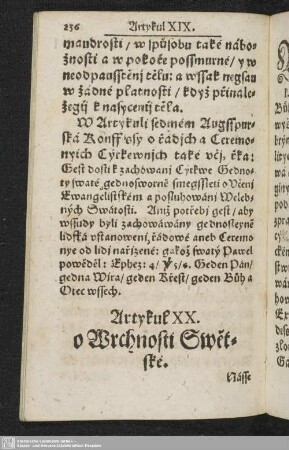 236 Artykul XIX.
maudrosti / w spůsobu také nábo-
žnosti a w pokoře possmurné / y w
neodpausstěnj tělu: a wssak negsau
w žádné platnosti / když přinále-
žegij k nasycenij těla.
W Artykuli sedmém Augsspur-
ská Konffessy o řádjch a Ceremo-
nyjch Cýrkewnjch také věj, řka:
Gest dosti k zachowánj Cýrkwe Gedno-
ty swaté gednoswórné smegssleti o Včenj
Ewangelistském a posluhowánj Weleb-
ných Swátostj. Aniž potřebj gest / aby
wssudy byli zachowáwány gednosteyné
lidská vstanowenj, řádowé aneb Ceremo-
nye od lidj nařjzené: gakož swatý Pawel
powěděl: Ephez: 4 / ℣ 5 / 6. Geden Pán /
gedna Wjra / geden Křest / geden Bůh a
Otec wssech.
Artykul XX.
o Wrchnosti Swět-
ské.
Násse